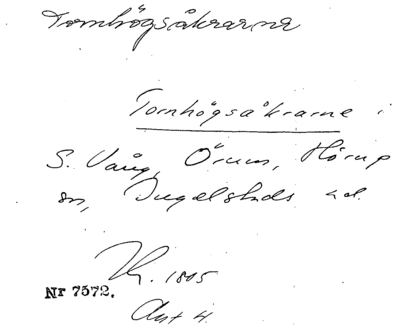 Tornhögsåkrarna
Tornhögsåkrarne i
S. Vång, Örum, Hörup
sn, Ingelstads hd.
1805
Nr 7572.
Akt 4.